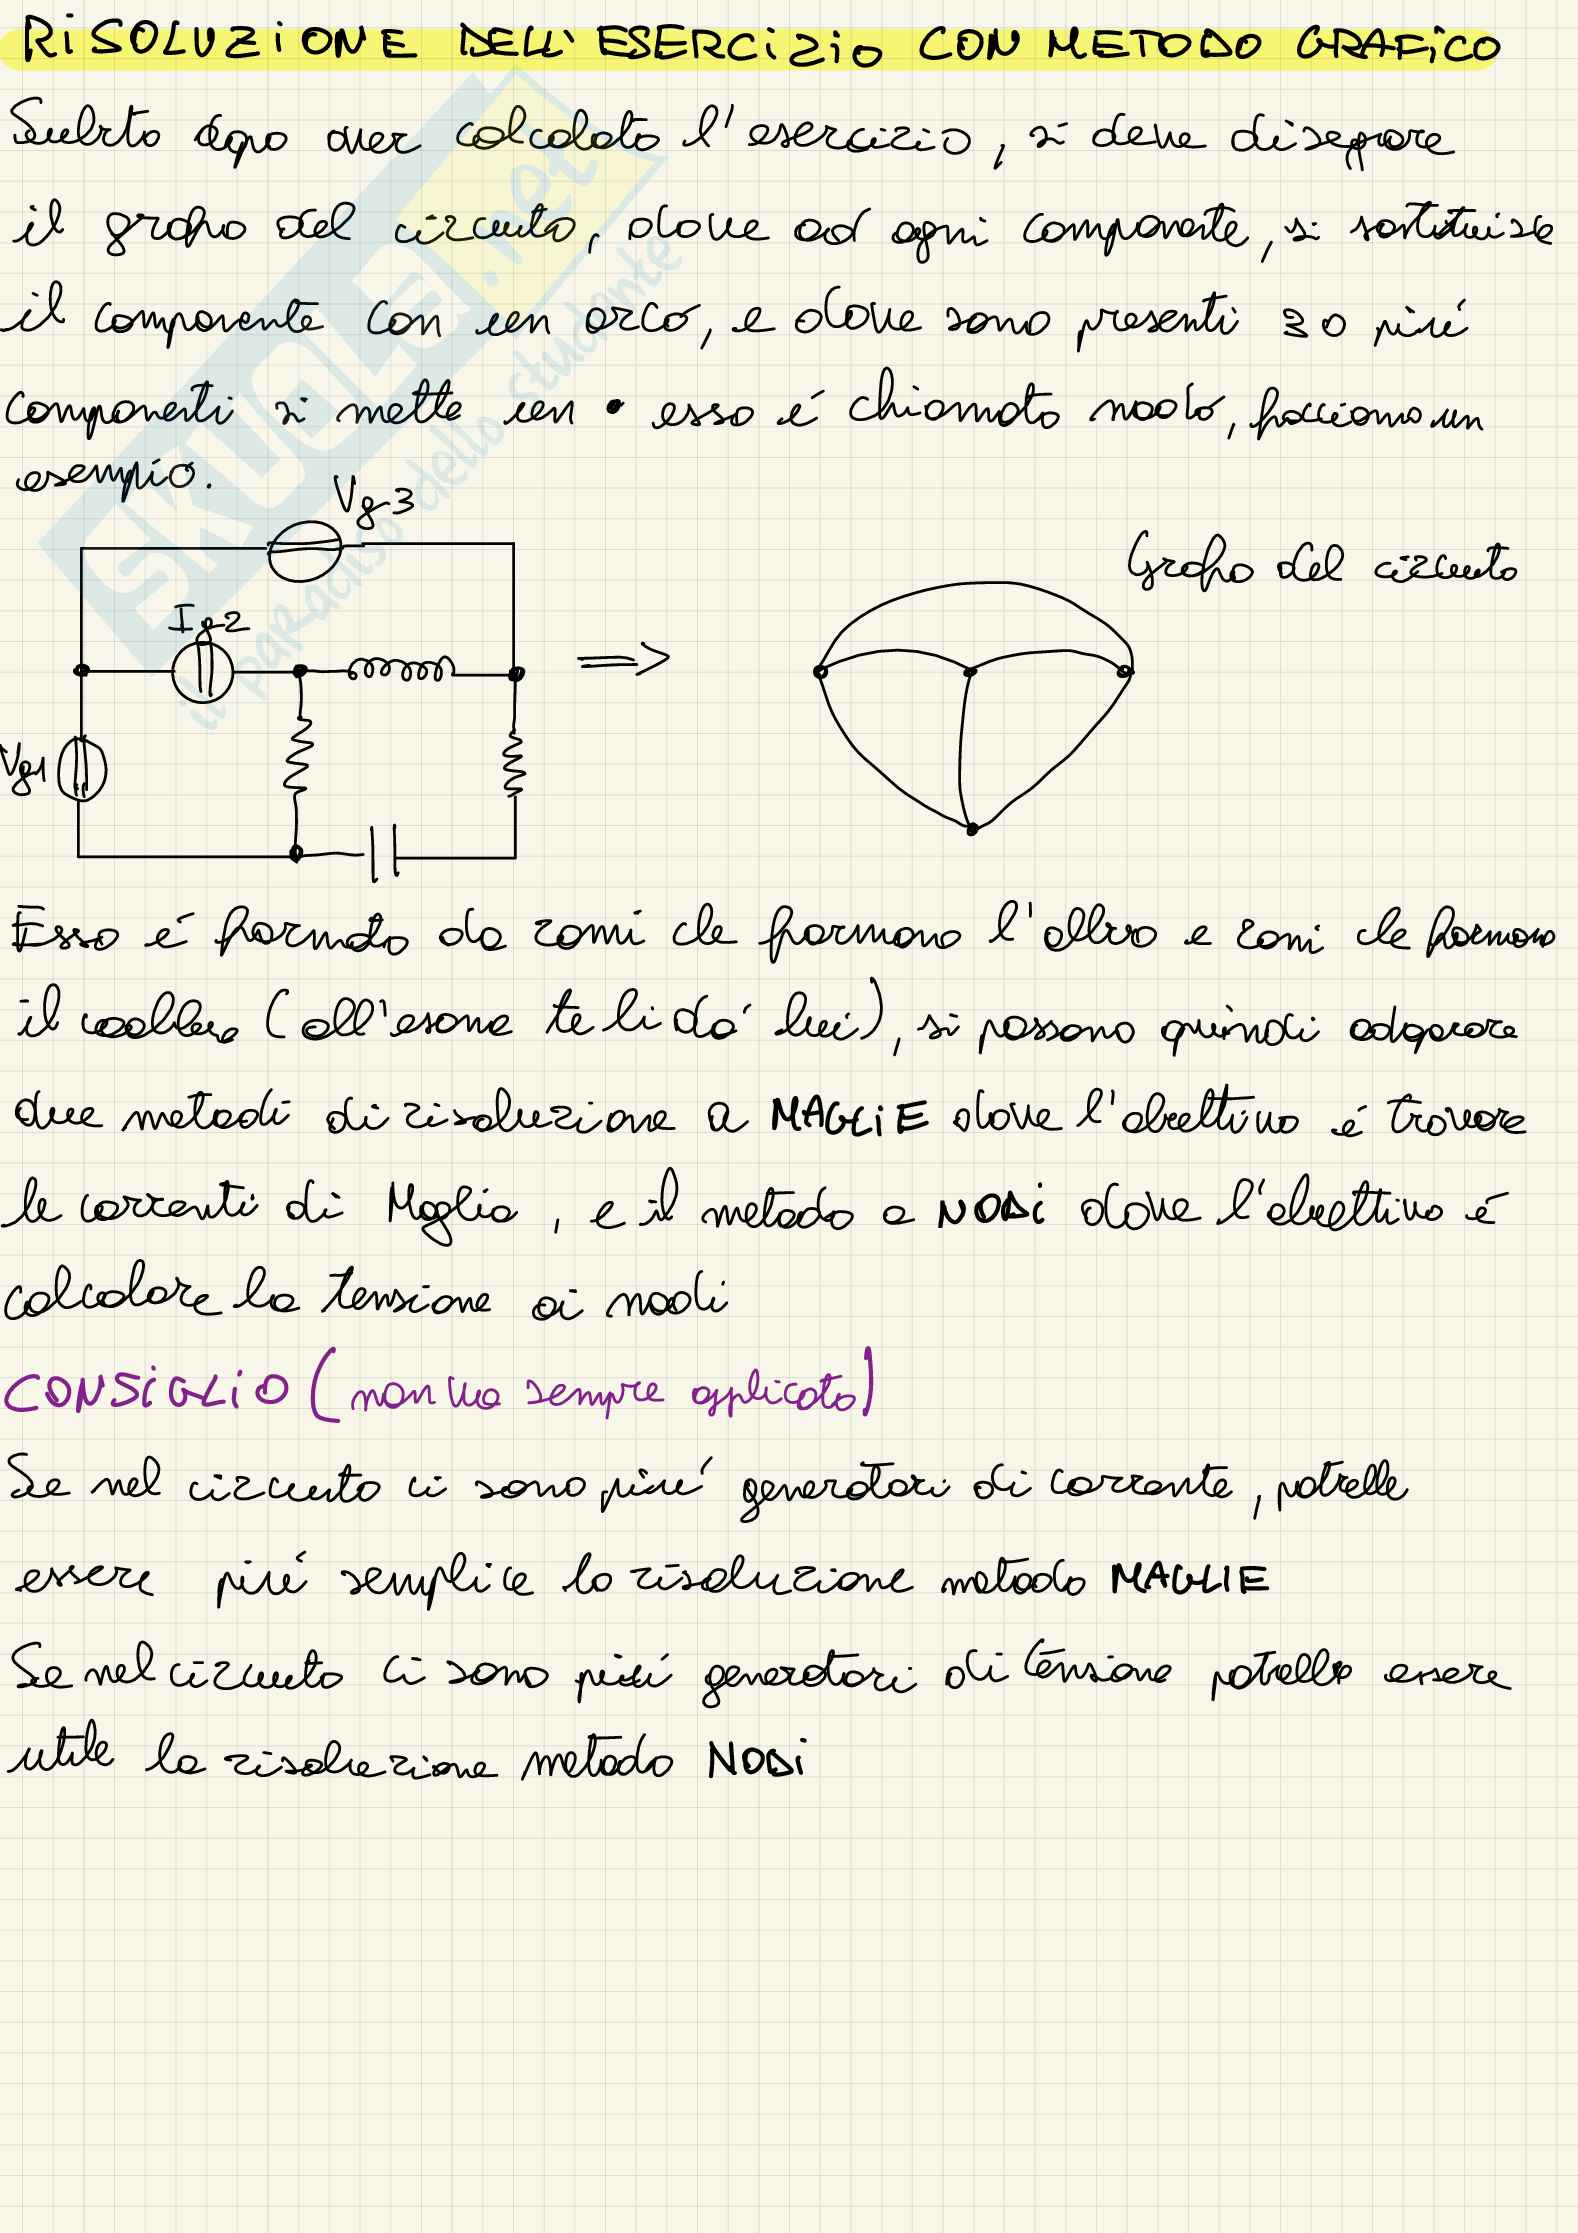 RiSOLUZiONE DELL'ESERCiZio CON METODO GRAFiCO
Subito dopo aver calcolato l'esercizio, si deve disegnare
il grafo del circuito, dove ad ogni componente, si sostituisce
il componente con un arco, e dove sono presenti 3 o più
componenti si mette un • esso é chiamato nodo, facciamo un
esempio.
Vg3
Grafo del circuito
Ig2
Vg1
Esso é formato da rami che formano l'albero e rami che formano
il coalbero (all'esame te li dá lui), si possono quindi adoperare
due metodi di risoluzione a MAGLiE dove l'obiettivo é trovare
le correnti di Maglia, e il metodo a NODi dove l'obiettivo é
calcolare la tensione ai nodi
CONSiGLiO (non va sempre applicato)
Se nel circuito ci sono più generatori di corrente, potrebbe
essere più semplice la risoluzione metodo MAGLIE
Se nel circuito ci sono più generatori di tensione potrebbe essere
utile la risoluzione metodo NODi
SKUOLA.net
il paradiso dello studente